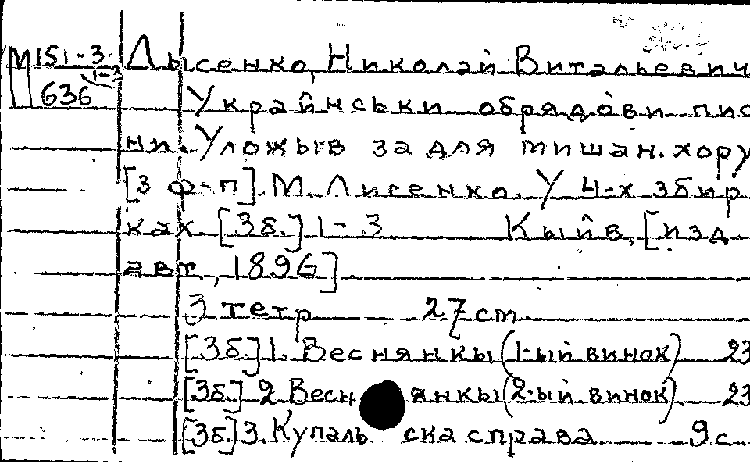 М151-3 Лысенко, Николай Витальевич
1-3
636 Украйнськи обрядови пис
ни. Уложыв за для мишан. хору
[з ф-п]. М. Лисенко. У 4-х збир
ках [Зб.] 1-3 Кыйв, [изд.
авт., 1896]
3 тетр 27cm
[Зб] 1. Веснянкы (1-ый винок) 23
[Зб.] 2 Веснянкы (2-ый винок) 23
[Зб.] 3. Купальска справа 9с